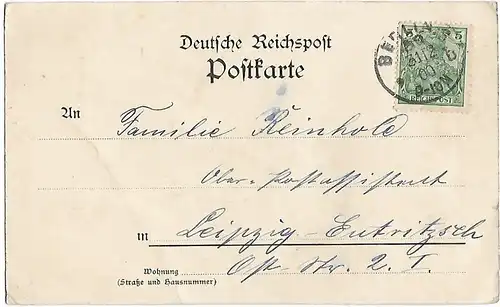 Deutsche Reichspost
Postkarte
BERLIN
5
31.12
00
8-10N
REICHSPOST
An Familie Reinhold
Ober-Postassistent
in Leipzig-Eutritzsch
Wohnung Ost-Str. 2. I.
(Straße und Hausnummer)